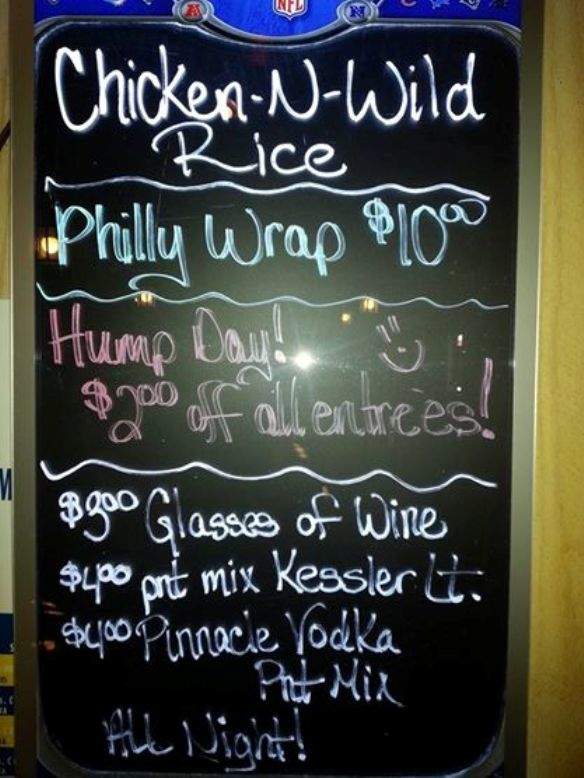 NFL
Chicken-N-Wild
Rice
Philly Wrap $10⁰⁰
Hump Day!
$2⁰⁰ off all entrees!
$3⁰⁰ Glasses of Wine
$4⁰⁰ pnt mix Kessler Lt.
$4⁰⁰ Pinnacle Vodka
Pnt Mix
All Night!